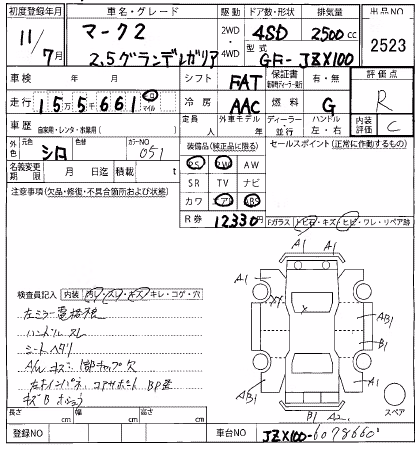 初度登録年月 車名・グレード 駆動 ドア数・形状 排気量 出品NO
11/7月 マーク2 2WD・4WD 4SD 2500cc 2523
2.5グランデレガリア 2WD・4WD 型式 GF-JZX100
車検 年 月 シフト FAT 保証書 有・無 評価点
走行 155千661 マイル 冷房 AAC 燃料 G R
車歴 自家用・レンタ・事業用( ) 定員 人 外車モデル 年 ディーラー・並行 ハンドル 左・右 内装評価 C
外色 元色 シロ 色替 カラーNO 051 装備品(純正品に限る) セールスポイント(正常に作動するもの)
PS PW AW
名義変更期限 月 日迄 積載 t SR TV ナビ
注意事項(欠品・修復・不具合個所および状態) カワ エアB ABS
R券 12330円 Fガラス トビ石・キズ・ヒビ・ワレ・リペア跡
A1
A1 A1
検査員記入 内装 汚レ・スレ・キズ・キレ・コゲ・穴
AB1
左ミラー電格不良
B1
ハンドルスレ
シートヘタリ
A1
AB1 A1
スペア
B1 A2
長さ cm 幅 cm 高さ cm
登録NO 車台NO JZX100-6078660